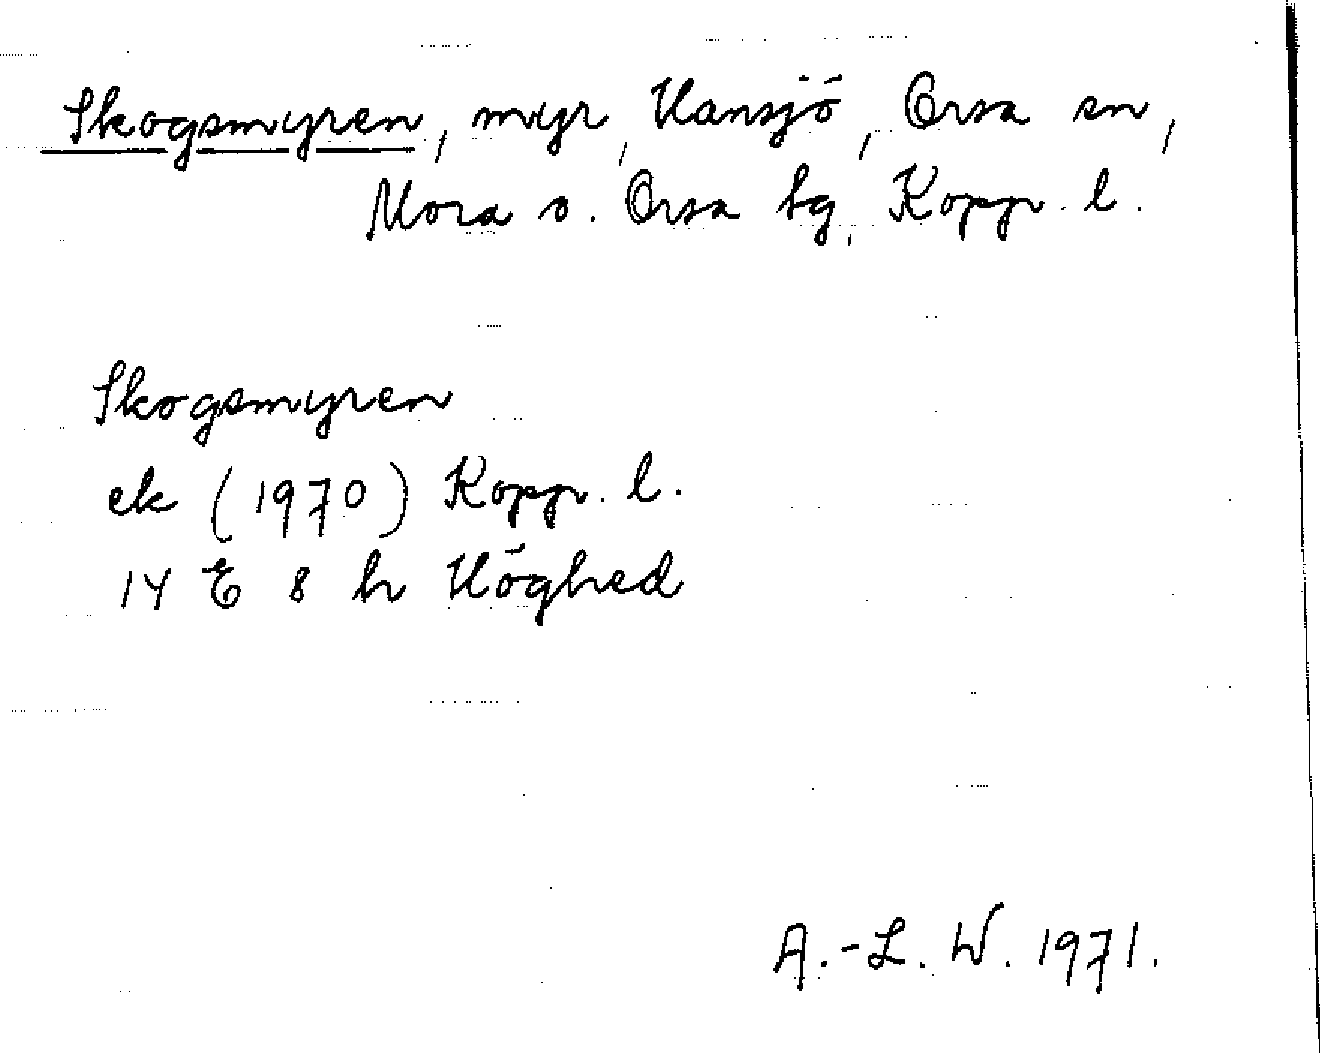 Skogsmyren, myr, Hansjö, Orsa sn,
Mora o. Orsa tg, Kopp. l.
Skogsmyren
ek (1970) Kopp. l.
14 E 8 h Höghed
A.-L. W. 1971.